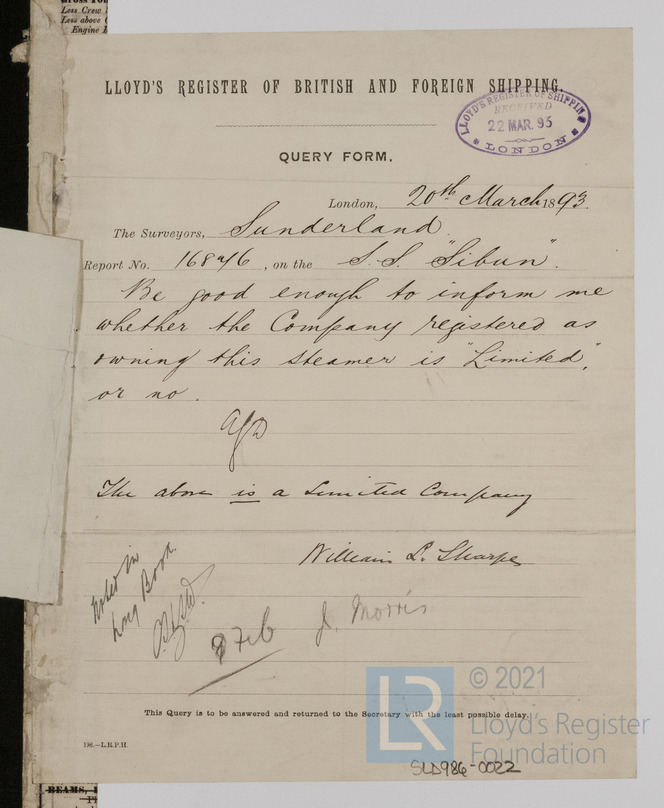 Less Crew
Less above
Engine
LLOYD'S REGISTER OF BRITISH AND FOREIGN SHIPPING.
LLOYD'S REGISTER OF SHIPPING
RECEIVED
22 MAR. 93
LONDON
QUERY FORM.
London, 20th March 1893.
The Surveyors, Sunderland.
Report No. 16846, on the S.S. "Sibun".
Be good enough to inform me
whether the Company registered as
owning this steamer is "Limited",
or no.
The above is a Limited Company
William L. Sharpe
Noted in
Long Book.
J. Morris
This Query is to be answered and returned to the Secretary with the least possible delay.
196.—L.R.P.H.
BEAMS,
SLD986-0022
LR
© 2021
Lloyd's Register
Foundation